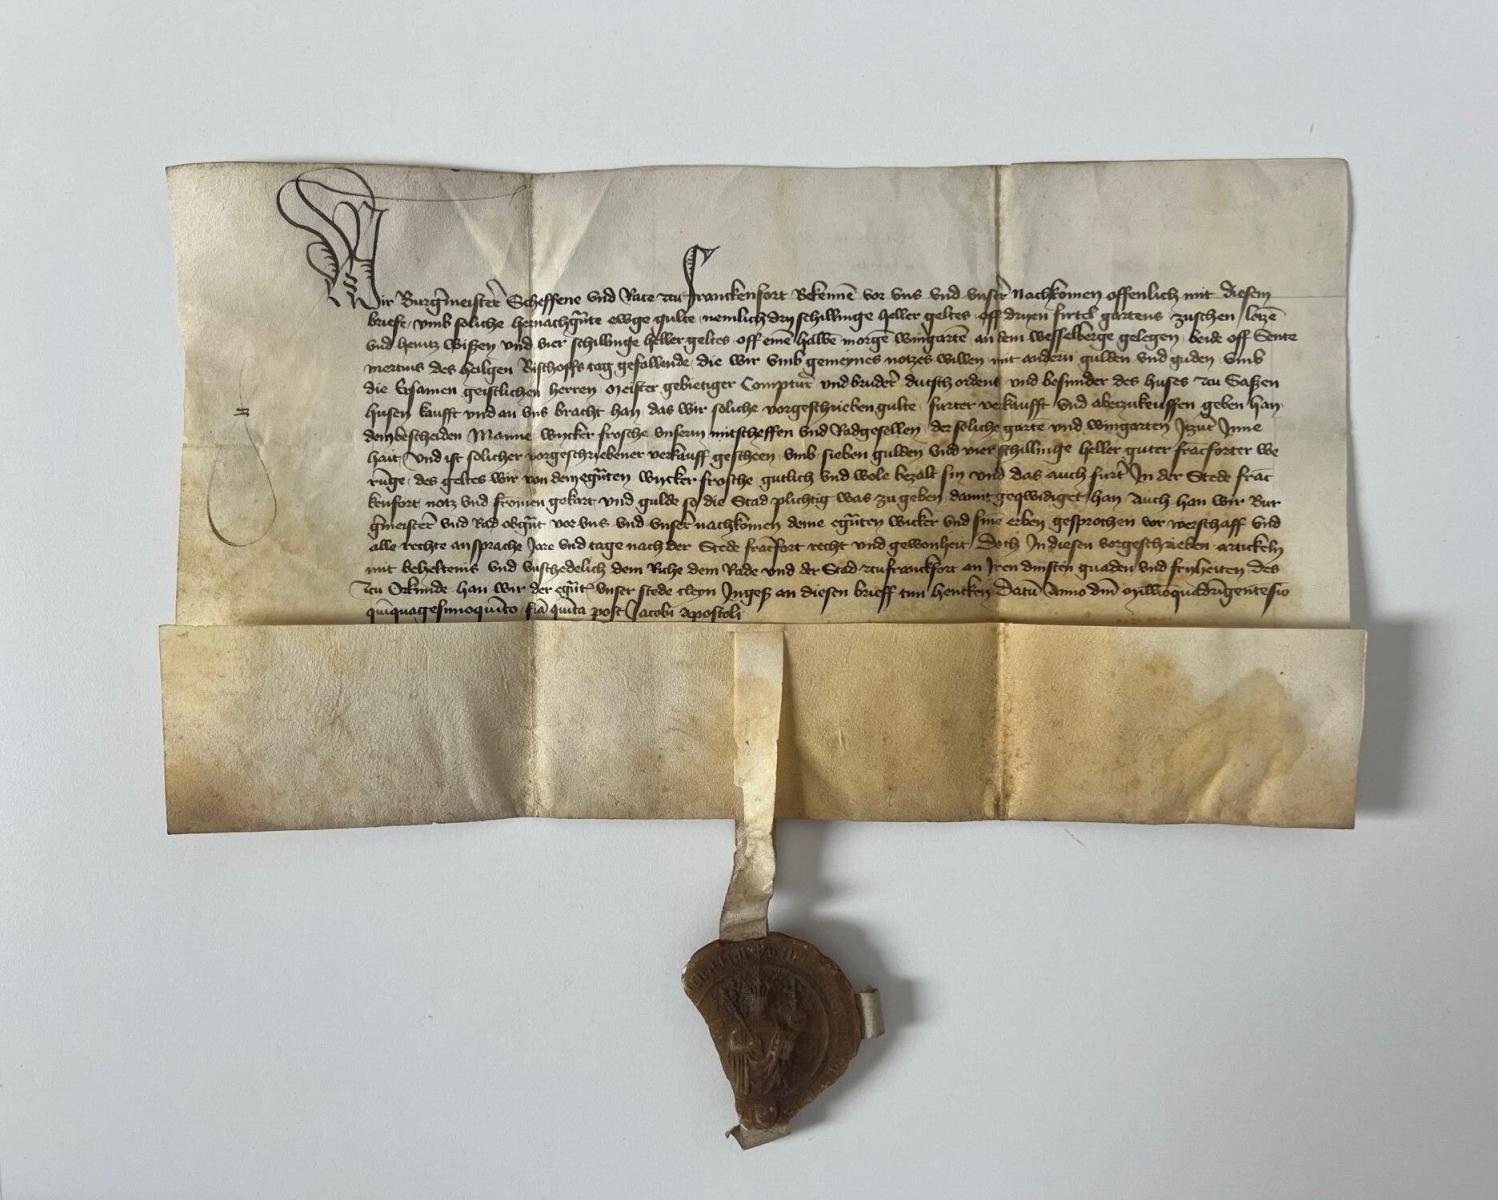 Wir Burgermeistere Scheffene vnd Rate zcu Franckenfort Bekennē vor vns vnd vnser nachkomen offenlich mit diesem
briefe, vmb soliche hernachgūte ewge gulte nemlich dry schillinge heller geltes off dryen firteil gartens zuschen
vnd henntz Wißen vnd vier schillinge heller geltes off einē halbē morgē wingartē an dem wesselberge gelegen beide off Sente
mertins des heilgen Bischoffs tag gefallende, die wir vmb gemeynes notzes willen mit andern gulden vnd guden vmb
die Ersamen geistlichen herren meister gebietiger Comptur vnd bruder dutsch ordens vnd besunder des huses zcu Saßen
husen kaufft vnd an vns bracht han das wir soliche vorgeschrieben gulte furter verkaufft vnd abetzukeuffen geben han
dem bescheiden Manne wycker frosche vnserm mitscheffen vnd Radgesellen der soliche garte vnd wingarten Jtzut Jnne
hait, vnd ist solicher vorgeschriebener verkauff gescheen vmb sieben gulden vnd vier schillinge heller guter frācforter we
runge, des geltes wir von dem egūten wycker frosche gutlich vnd wole bezalt sin vnd das auch furt In der Stede franc
kenfort notz vnd fromen gekart vnd gulde so die Stad plichtig was zu geben damit geqwidiget han Auch han wir Bur
gmeistere vnd Rad obgūt vor vns vnd vnser nachkomen deme egūten wicker vnd sinē erben gesprochen vor werschaff vnd
alle rechte ansprache Jare vnd tage nach der Stede francfort recht vnd gewonheit, Doch In diesen vorgeschrieben artickeln
mit beheltenis vnd vnschedelich dem Riche dem Rade vnd der Stad zcu franckfort an Iren dinsten gnaden vnd fryheiten des
zcu Orkunde han wir der egūt vnser stede cleyn Jngeß an diesen brieff tun hencken Datū Anno dm̄ millīoquadringentesīo
quīquagesimoquīto, fīa quīta post Jacobi apostoli